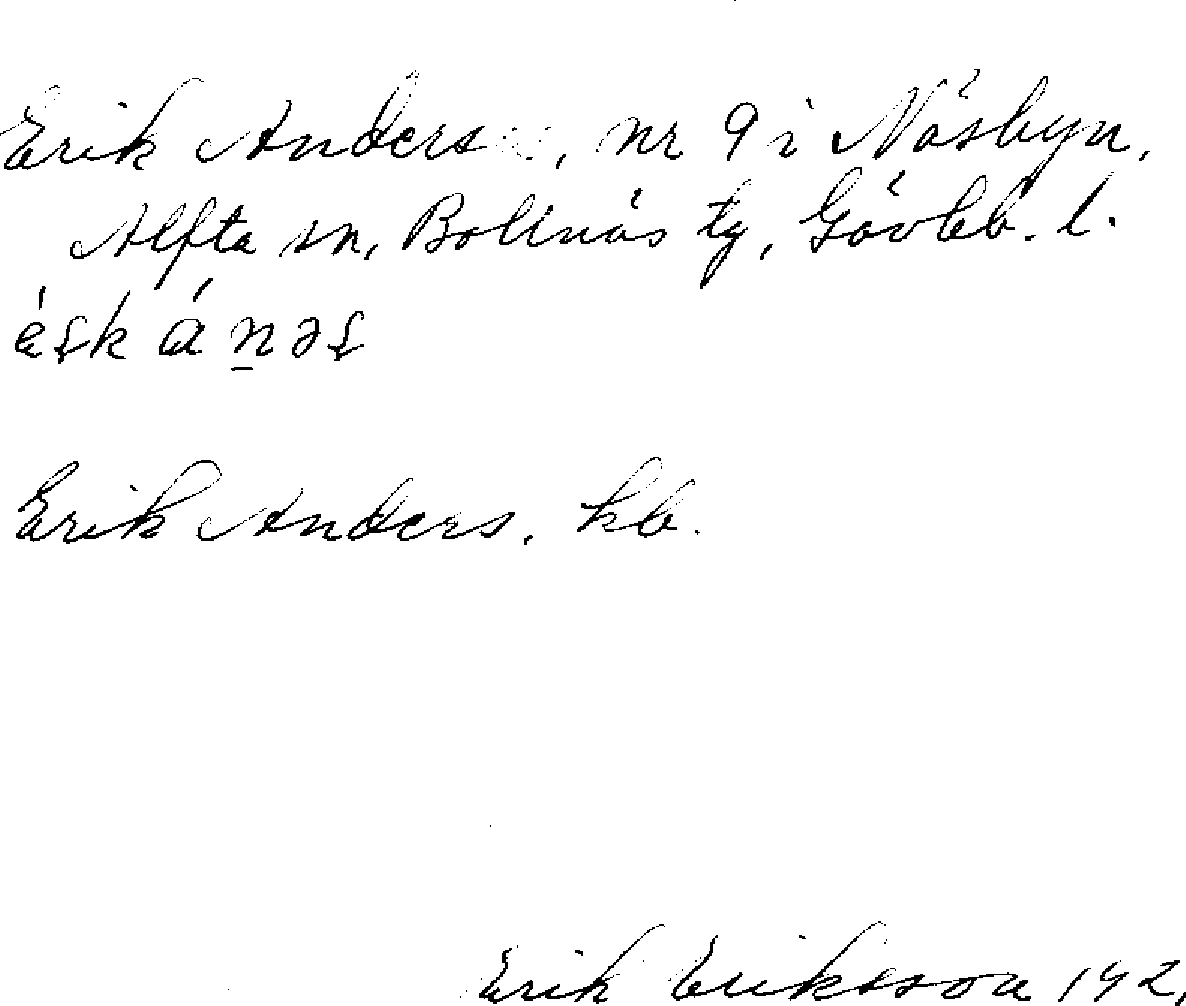 Erik Anders, nr 9 i Näsbyn,
Alfta sn, Bollnäs tg, Gävleb. l.
Erik Anders. kb.
Erik Eriksson 192